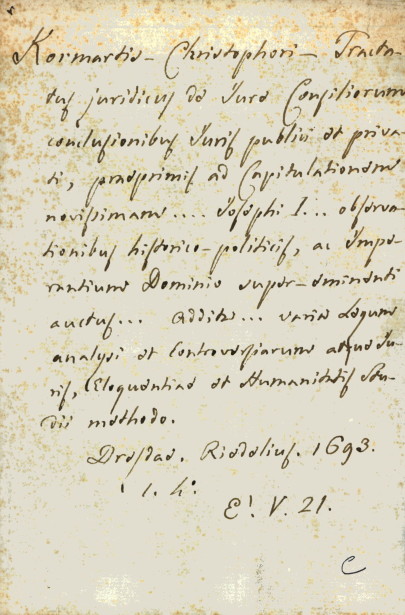 Kormartis Christophori Tracta-
tus juridicus de Jure Consiliorum
conclusionibus Juris publici et priva-
ti, praeprimis ad Capitulationem
novissimam .... Josephi I... observa-
tionibus historico-politicis, ac Impe-
rantium Dominio super-eminenti
auctus... Addita... varia Legum
analysi et Controversiarum atque Ju-
ris, Eloquentiae et Humanitatis Stu-
dii methodo.
Dresdae. Riedelius. 1693.
1. 4°.
E'. V. 21.
C